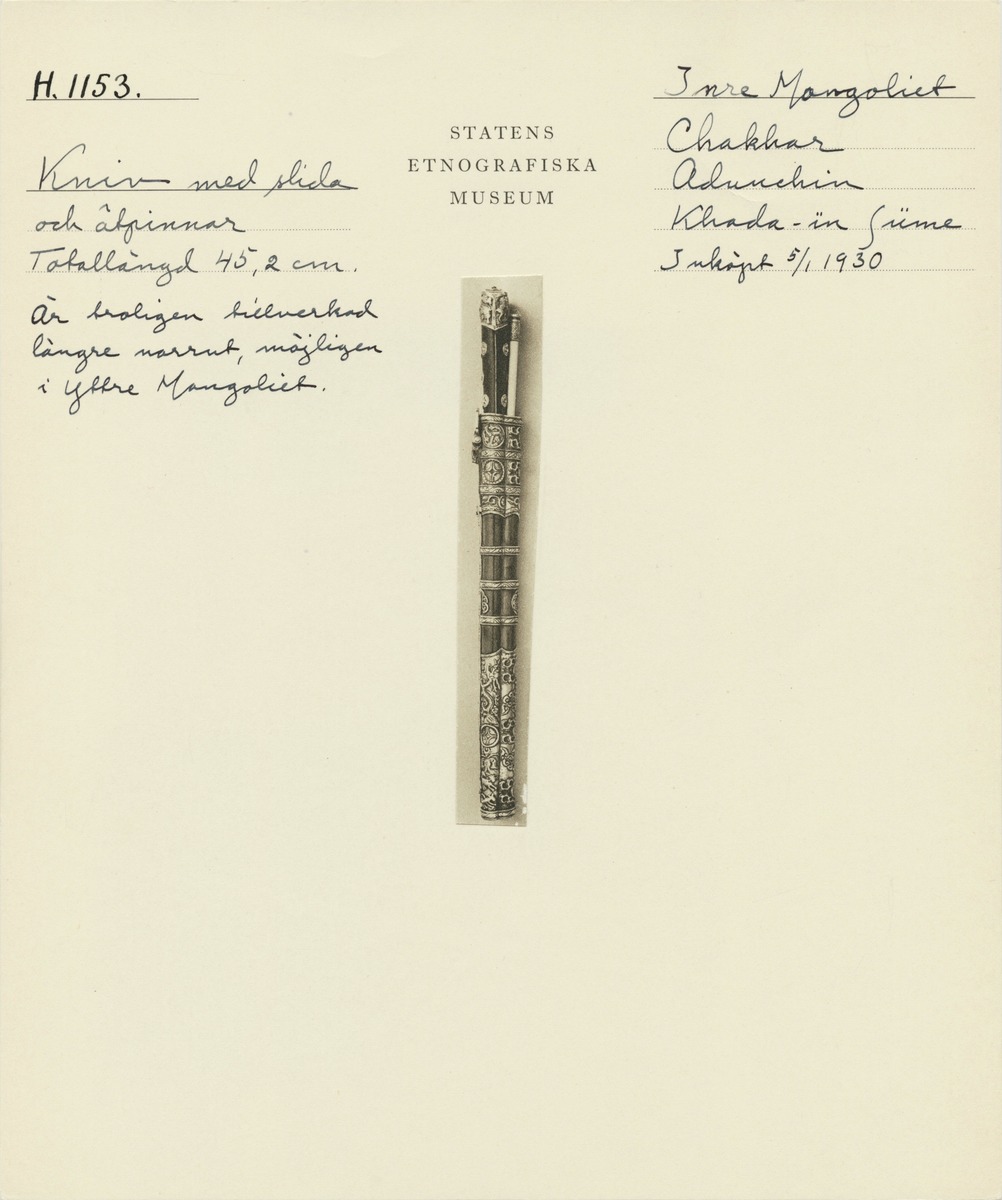 H. 1153.
Kniv med slida
och ätpinnar
Totallängd 45,2 cm.
Är troligen tillverkad
längre norrut, möjligen
i Yttre Mongoliet.
STATENS
ETNOGRAFISKA
MUSEUM
Inre Mongoliet
Chakhar
Aduuchin
Khada-in Süme
Inköpt 5/1 1930